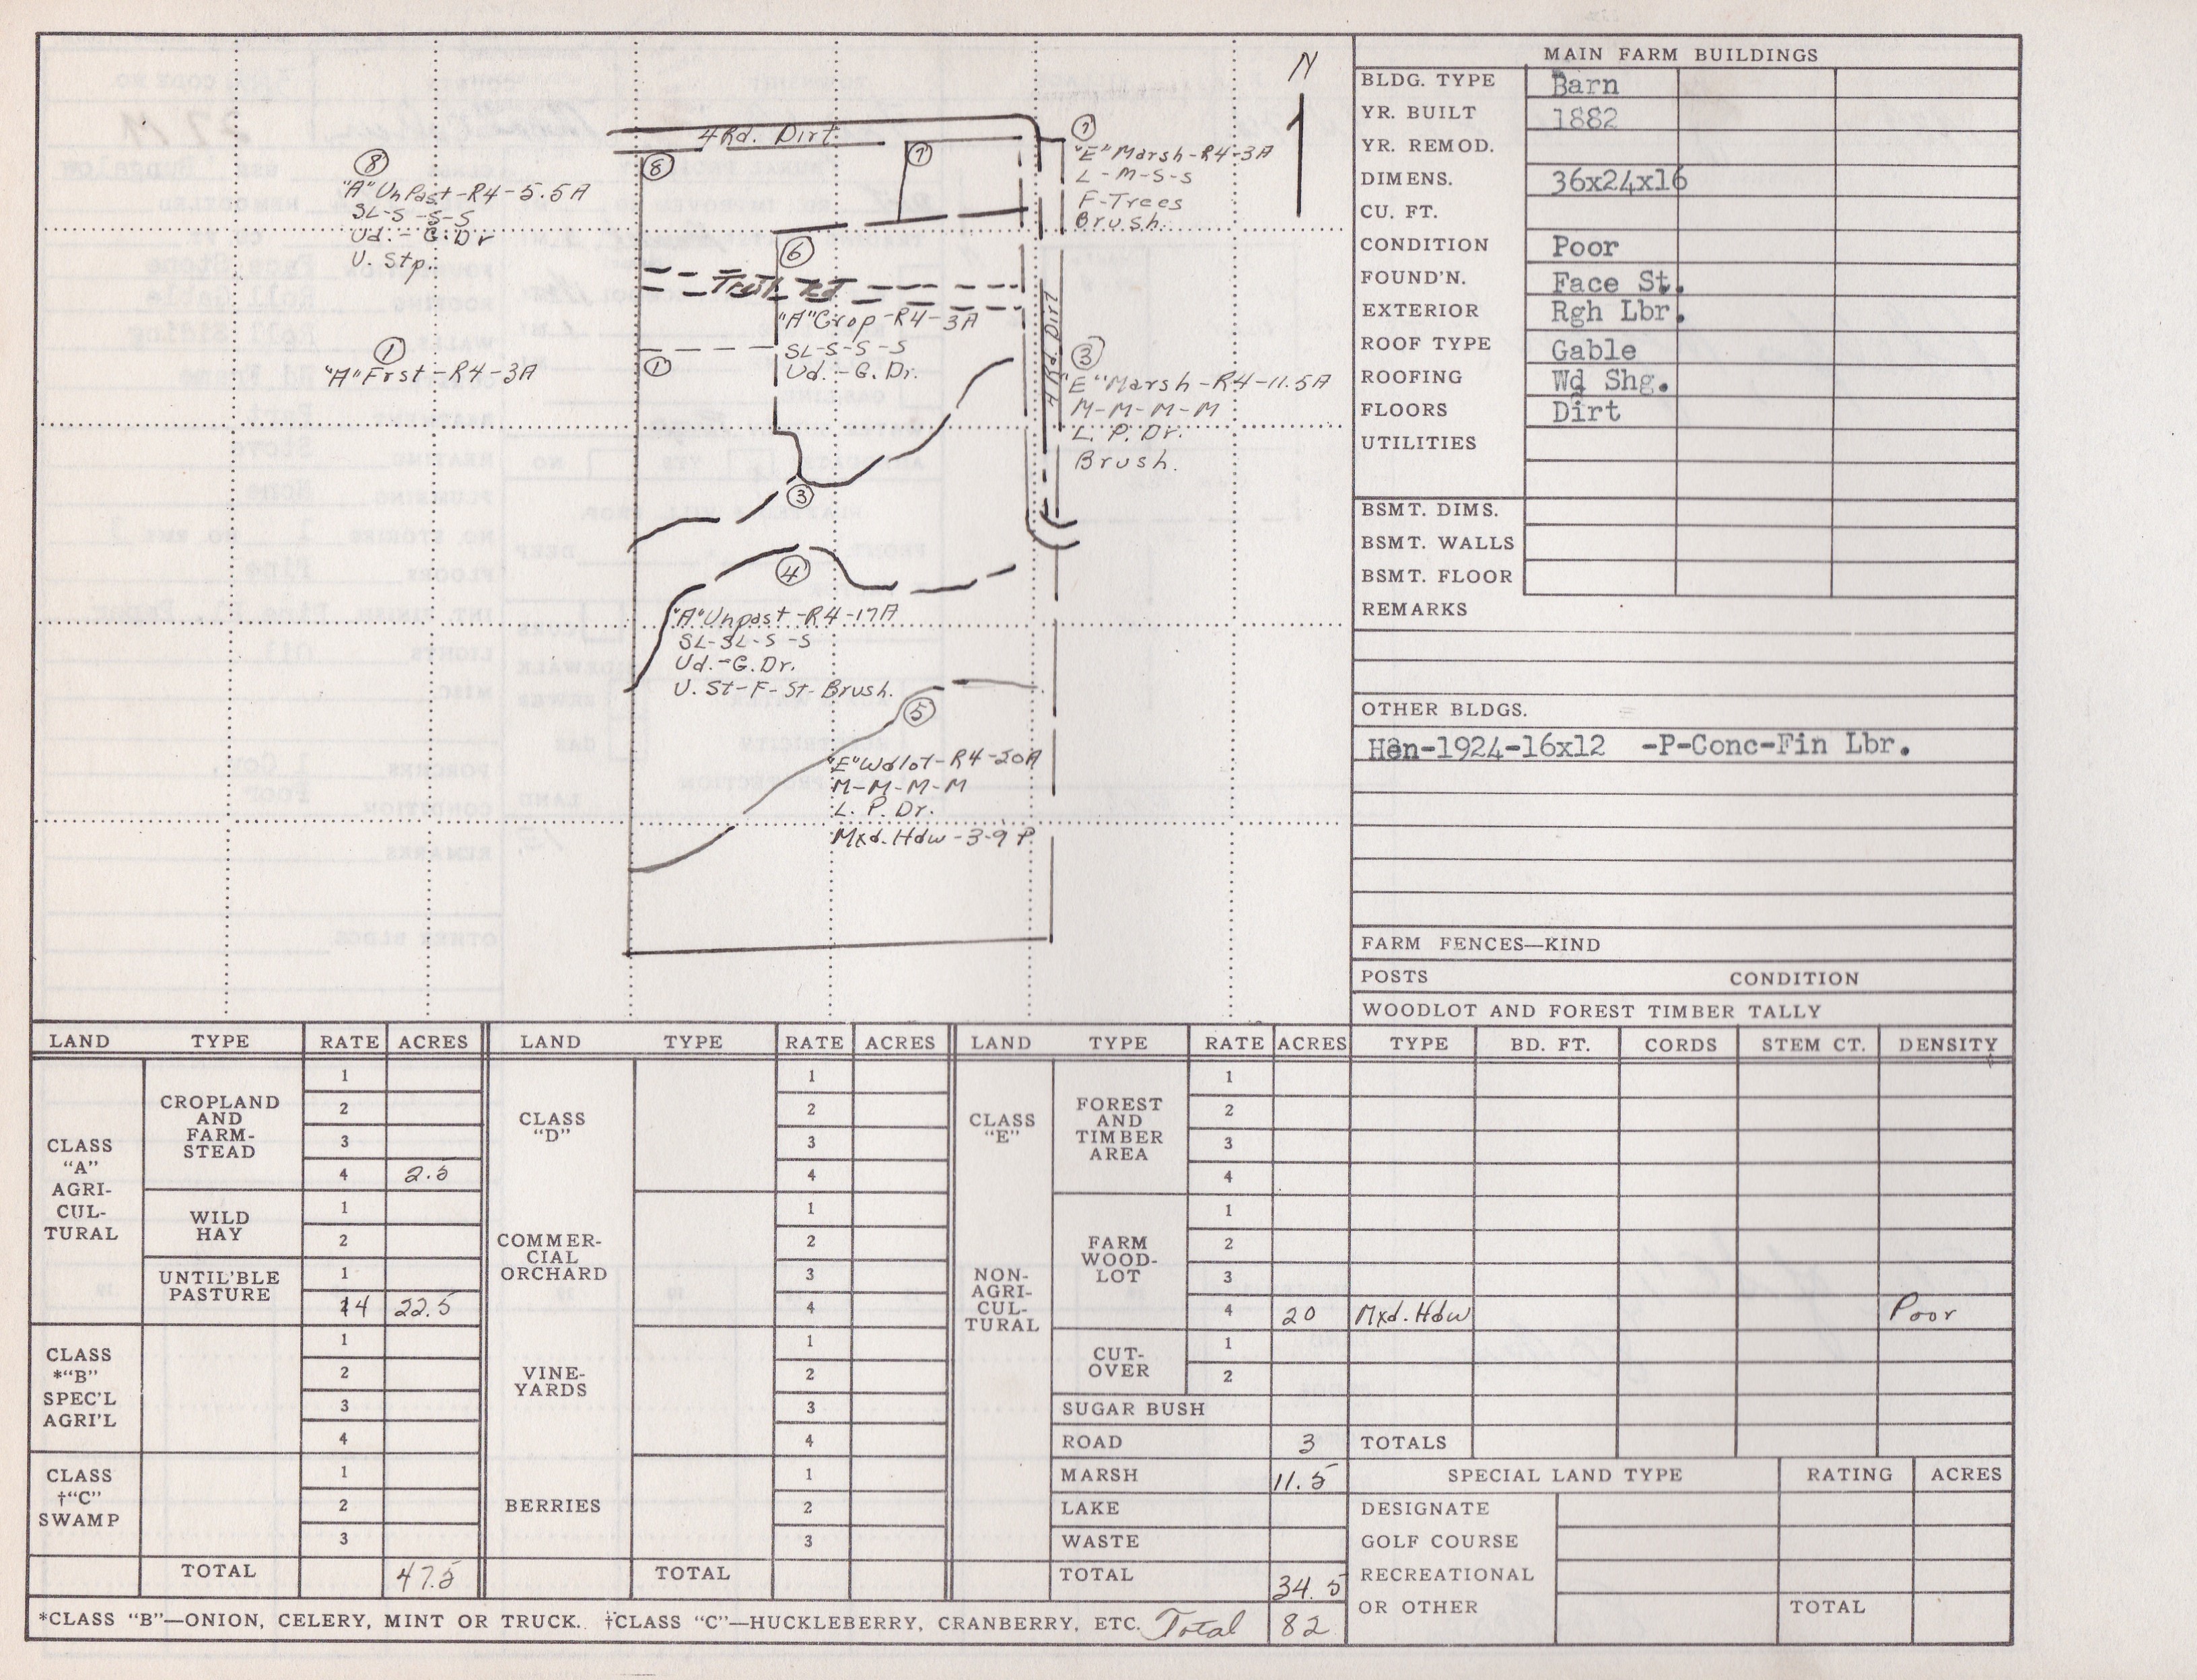 N
4 Rd. Dirt
8
"A" UnPast-R4-5.5A
SL-S-S-S
Ud.-G.Dr
U. Stp.
8
7
7
"E" Marsh-R4-3A
L-M-S-S
F-Trees
Brush.
6
"A" Crop-R4-3A
SL-S-S-S
Ud.-G.Dr.
1
"A" Frst-R4-3A
1
4 Rd. Dirt
3
"E" Marsh-R4-11.5A
M-M-M-M
L. P. Dr.
Brush.
3
4
"A" Unpast-R4-17A
SL-SL-S-S
Ud.-G.Dr.
U. St-F-St-Brush.
5
"E" Wdlot-R4-20A
M-M-M-M
L. P. Dr.
Mxd. Hdw-3-9 P.
MAIN FARM BUILDINGS
BLDG. TYPE Barn
YR. BUILT 1882
YR. REMOD.
DIMENS. 36x24x16
CU. FT.
CONDITION Poor
FOUND'N. Face St.
EXTERIOR Rgh Lbr.
ROOF TYPE Gable
ROOFING Wd Shg.
FLOORS Dirt
UTILITIES
BSMT. DIMS.
BSMT. WALLS
BSMT. FLOOR
REMARKS
OTHER BLDGS.
Hen-1924-16x12 -P-Conc-Fin Lbr.
FARM FENCES—KIND
POSTS CONDITION
WOODLOT AND FOREST TIMBER TALLY
LAND TYPE RATE ACRES LAND TYPE RATE ACRES LAND TYPE RATE ACRES TYPE BD. FT. CORDS STEM CT. DENSITY
CLASS
"A"
AGRI-
CUL-
TURAL
CROPLAND
AND
FARM-
STEAD
1
2
3
4 2.5
WILD
HAY
1
2
UNTIL'BLE
PASTURE
1
4 22.5
CLASS
*"B"
SPEC'L
AGRI'L
1
2
3
4
CLASS
†"C"
SWAMP
1
2
3
TOTAL 47.5
CLASS
"D"
1
2
3
4
COMMER-
CIAL
ORCHARD
1
2
3
4
VINE-
YARDS
1
2
3
4
BERRIES
1
2
3
TOTAL
CLASS
"E"
NON-
AGRI-
CUL-
TURAL
FOREST
AND
TIMBER
AREA
1
2
3
4
FARM
WOOD-
LOT
1
2
3
4 20 Mxd. Hdw Poor
CUT-
OVER
1
2
SUGAR BUSH
ROAD 3
MARSH 11.5
LAKE
WASTE
TOTAL 34.5
TOTALS
SPECIAL LAND TYPE RATING ACRES
DESIGNATE
GOLF COURSE
RECREATIONAL
OR OTHER TOTAL
*CLASS "B"—ONION, CELERY, MINT OR TRUCK. †CLASS "C"—HUCKLEBERRY, CRANBERRY, ETC. Total 82